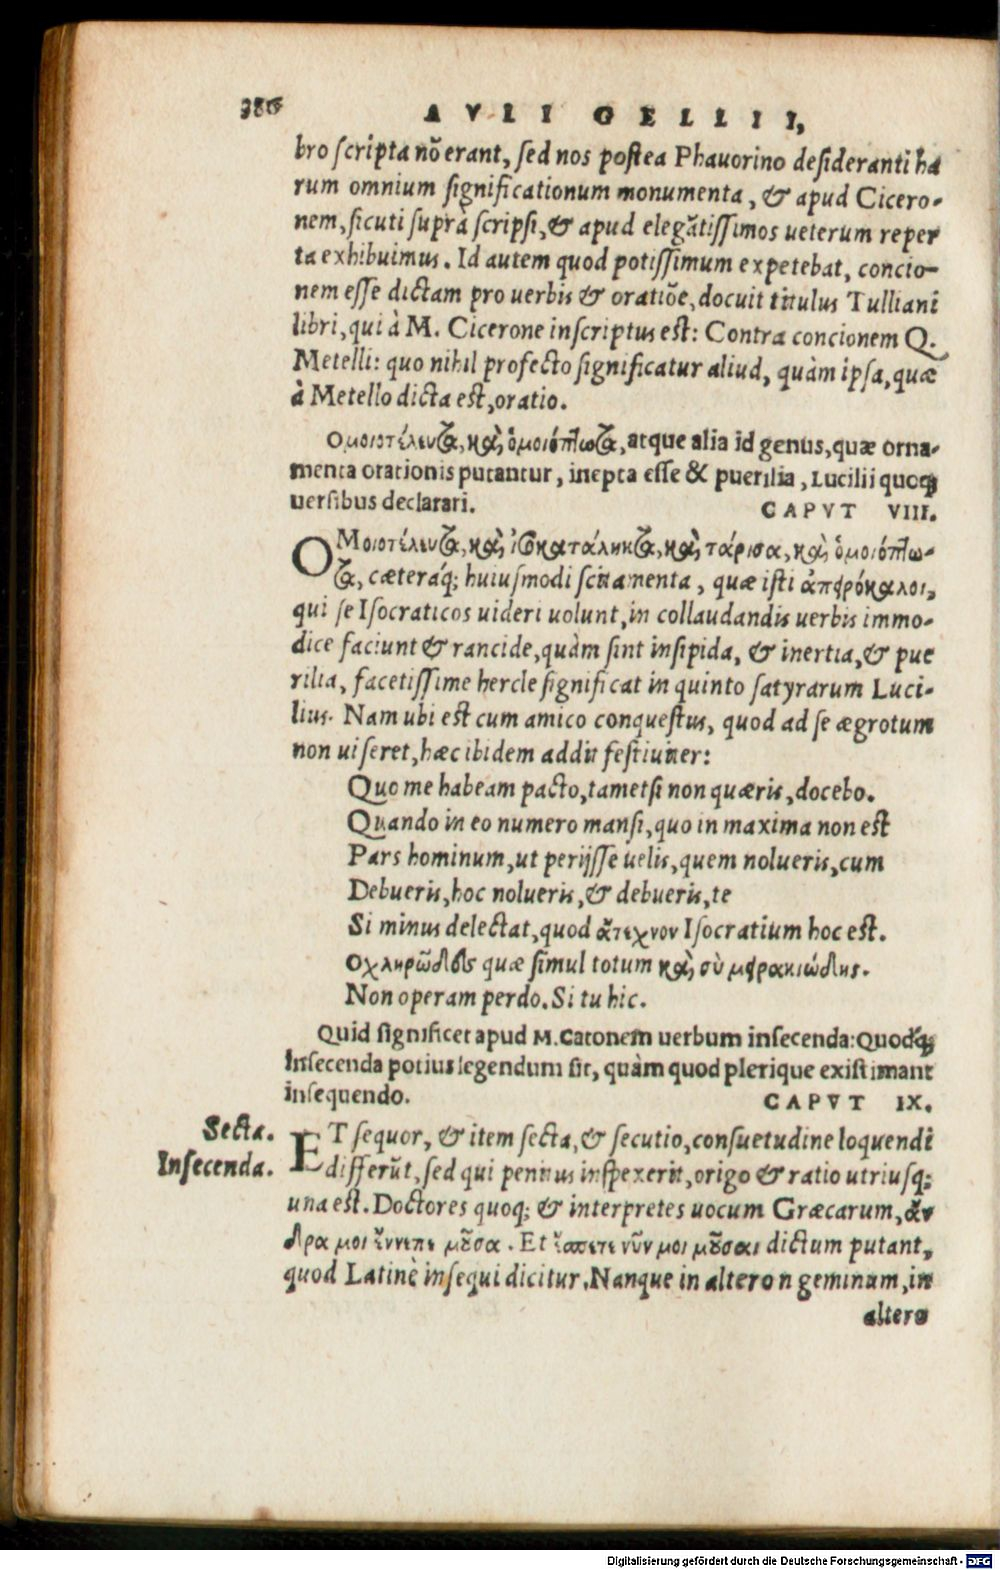 386
AVLI GELLII,
bro scripta nō erant, sed nos postea Phauorino desideranti ha
rum omnium significationum monumenta, & apud Cicero-
nem, sicuti suprà scripsi, & apud elegātissimos ueterum reper
ta exhibuimus. Id autem quod potissimum expetebat, concio-
nem esse dictam pro uerbis & oratiōe, docuit titulus Tulliani
libri, qui à M. Cicerone inscriptus est: Contra concionem Q.
Metelli: quo nihil profecto significatur aliud, quàm ipsa, quæ
à Metello dicta est, oratio.
Ομοιοτέλευτα, καὶ ὁμοιόπτωτα, atque alia id genus, quæ orna-
menta orationis putantur, inepta esse & puerilia, Lucilii quoq;
uersibus declarari.
CAPVT VIII.
OΜοιοτέλευτα, καὶ ἰσοκατάληκτα, καὶ τάρισα, καὶ ὁμοιόπτω-
τα, cæteráq; huiusmodi scitamenta, quæ isti ἀπειρόκαλοι,
qui se Isocraticos uideri uolunt, in collaudandis uerbis immo-
dice faciunt & rancide, quàm sint insipida, & inertia, & pue
rilia, facetissime hercle significat in quinto satyrarum Luci-
lius. Nam ubi est cum amico conquestus, quod ad se ægrotum
non uiseret, hæc ibidem addit festiuiter:
Quo me habeam pacto, tametsi non quæris, docebo.
Quando in eo numero mansi, quo in maxima non est
Pars hominum, ut perijsse uelis, quem nolueris, cum
Debueris, hoc nolueris, & debueris, te
Si minus delectat, quod ἄτεχνον Isocratium hoc est.
Οχληρῶδες quæ simul totum καὶ σὺ μειρακιώδης.
Non operam perdo. Si tu hic.
Quid significet apud M. Catonem uerbum insecenda: Quod'q;
Insecenda potius legendum sit, quàm quod plerique existimant
insequendo.
CAPVT IX.
Secta.
Insecenda.
ET sequor, & item secta, & secutio, consuetudine loquendi
differūt, sed qui penitus inspexerit, origo & ratio utriusq;
una est. Doctores quoq; & interpretes uocum Græcarum, ἄν
δρα μοι ἔννεπε μοῦσα. Et ἔσπετε νῦν μοι μοῦσαι dictum putant,
quod Latinè insequi dicitur. Nanque in altero n geminum, in
altero
Digitalisierung gefördert durch die Deutsche Forschungsgemeinschaft - DFG